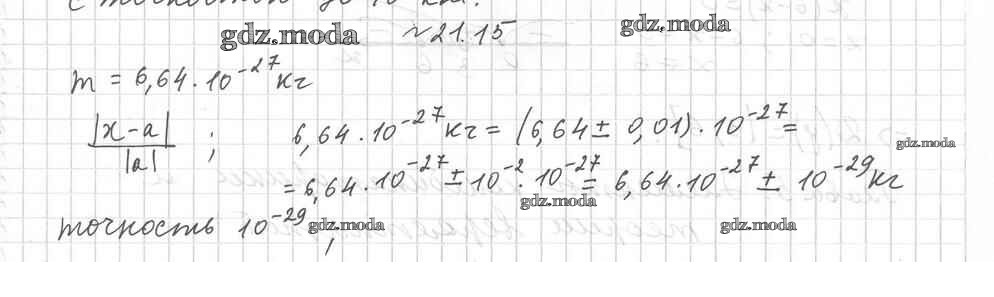 с точностью до
gdz.moda №21.15 gdz.moda
m = 6,64·10⁻²⁷ кг
|x-a|/|a| ; 6,64·10⁻²⁷ кг = (6,64 ± 0,01)·10⁻²⁷ =
gdz.moda
= 6,64·10⁻²⁷ ± 10⁻²·10⁻²⁷ = 6,64·10⁻²⁷ ± 10⁻²⁹ кг
gdz.moda
точность 10⁻²⁹, gdz.moda gdz.moda